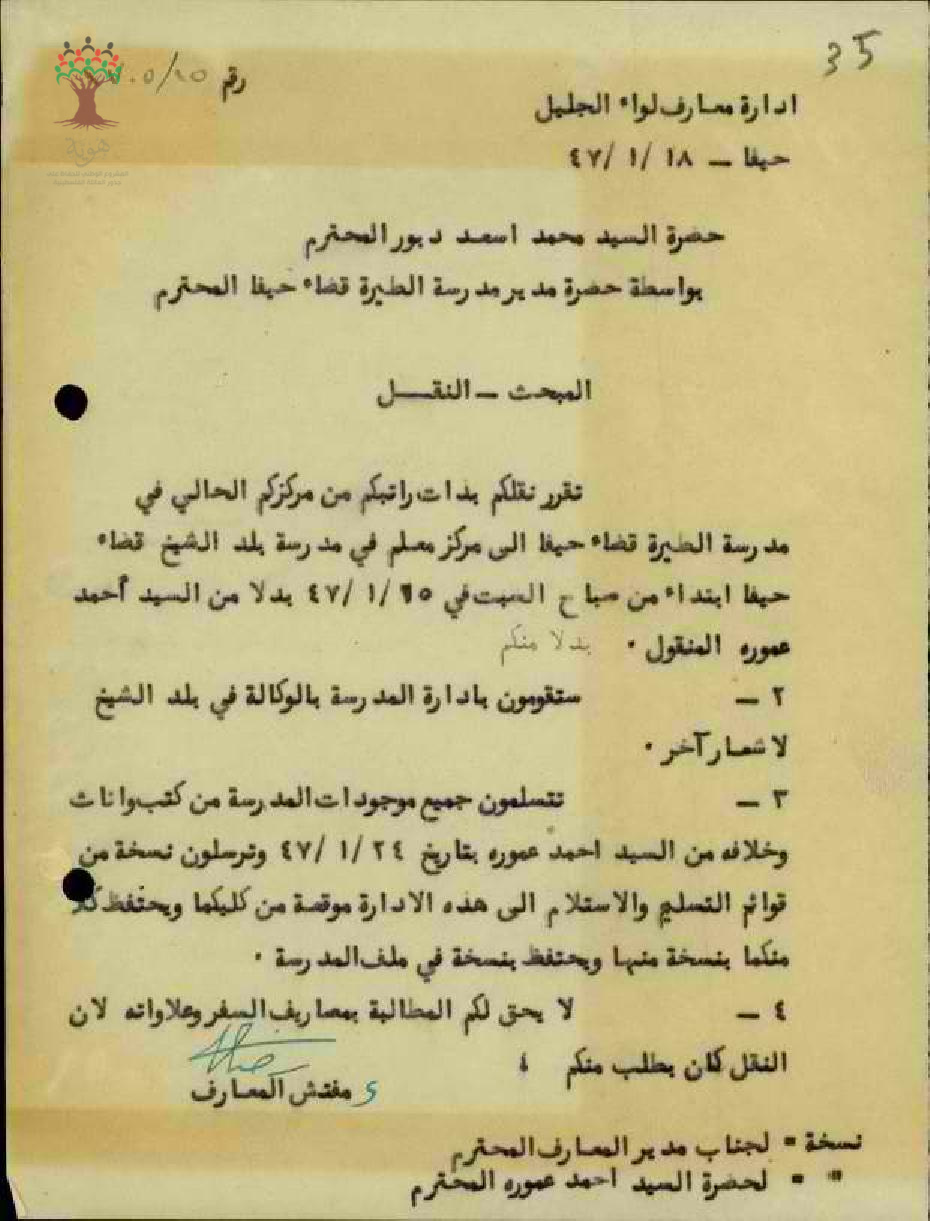 35
رقم
هوية
ادارة معارف لواء الجليل
حيفا — ١٨ /١ /٤٧
حضرة السيد محمد اسعد دبور المحترم
بواسطة حضرة مدير مدرسة الطيرة قضاء حيفا المحترم
المبحث — النقــل
تقرر نقلكم بذات راتبكم من مركزكم الحالي في
مدرسة الطيرة قضاء حيفا الى مركز معلم في مدرسة بلد الشيخ قضاء
حيفا ابتداء من صباح السبت في ٢٥ /١ /٤٧ بدلا من السيد أحمد
عموره المنقول . بدلا منكم
٢ — ستقومون بادارة المدرسة بالوكالة في بلد الشيخ
لاشعار آخر .
٣ — تتسلمون جميع موجودات المدرسة من كتب واثاث
وخلافه من السيد احمد عموره بتاريخ ٢٤ /١ /٤٧ وترسلون نسخة من
قوائم التسليم والاستلام الى هذه الادارة موقعة من كليكما ويحتفظ كلا
منكما بنسخة منها ويحتفظ بنسخة في ملف المدرسة .
٤ — لا يحق لكم المطالبة بمصاريف السفر وعلاواته لان
النقل كان بطلب منكم ؛
مفتش المعارف
نسخة = لجناب مدير المعارف المحترم
" = لحضرة السيد احمد عموره المحترم